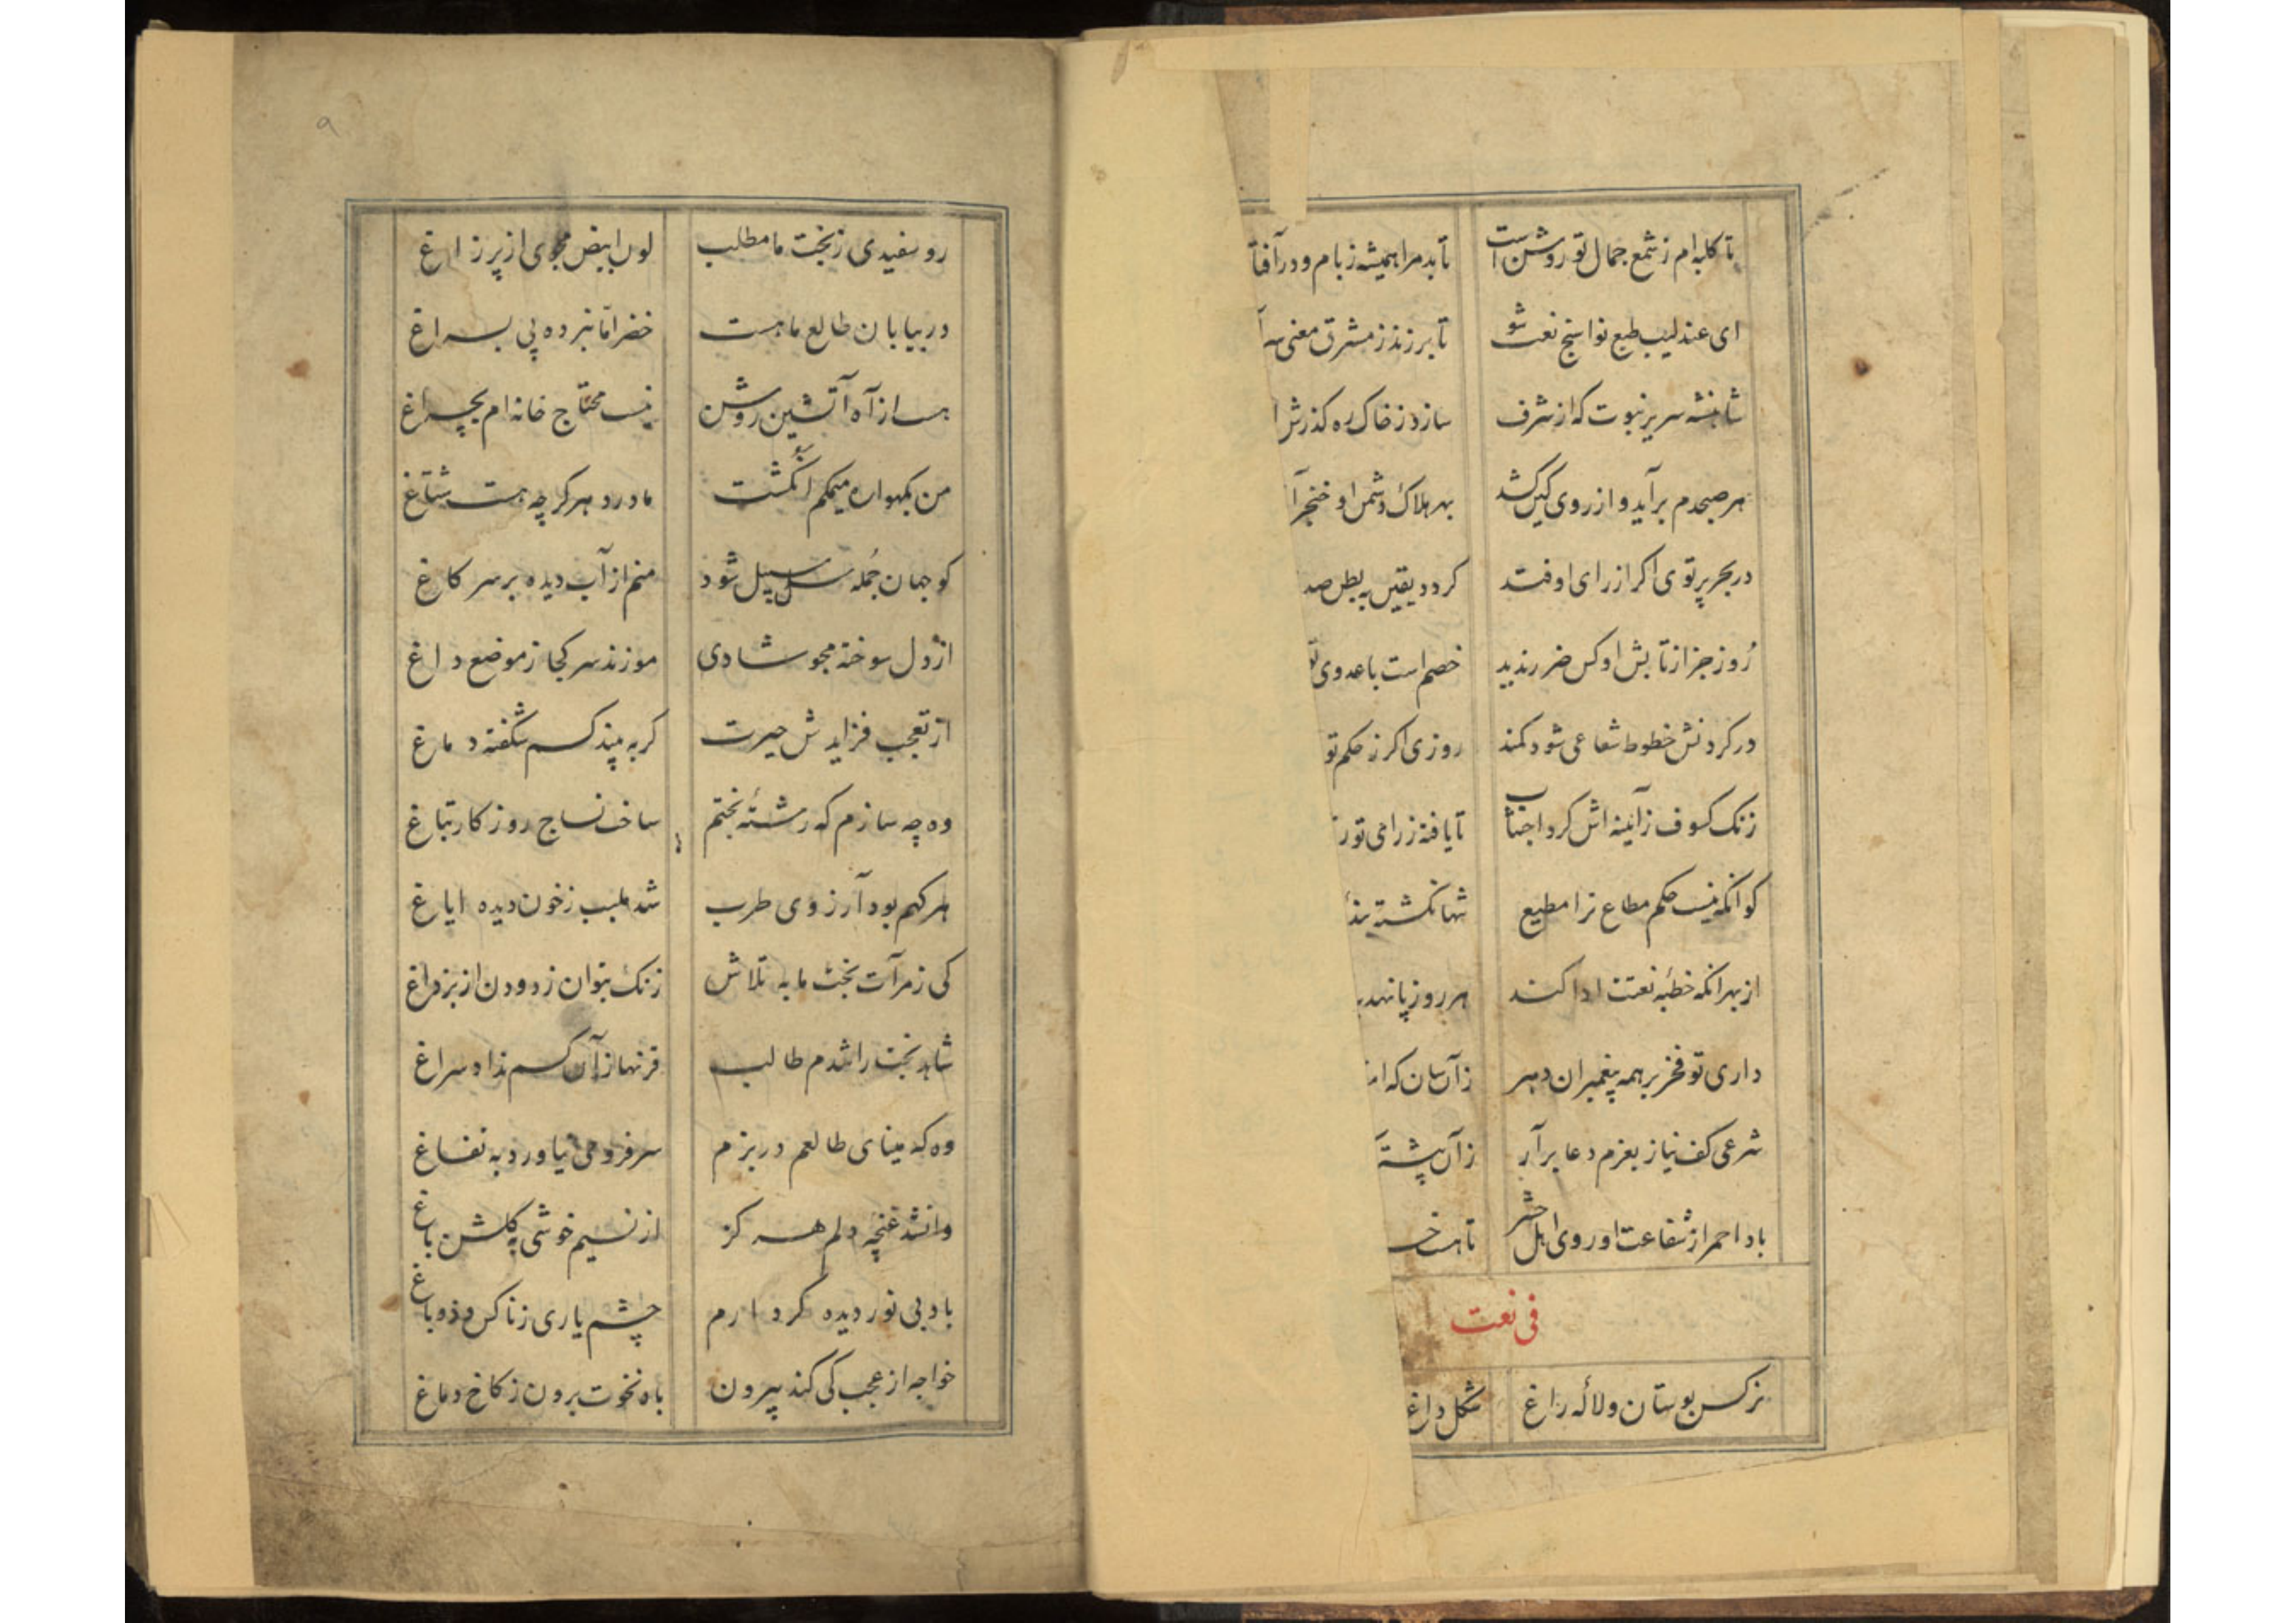 تا کلبه‌ام ز شمع جمال تو روشن است تابد مرا همیشه ز بام و در آفتا
ای عندلیب طبع نواسنج نعت شو تا بر زند ز مشرق معنی سر آ
شاهنشه سریر نبوت که از شرف سازد ز خاک ره گذرش ا
هر صبحدم برآید و از روی کین کشد بهر هلاک دشمن او خنجر آ
در بحر پرتوی اکر از رای او فتد کردد یقین به بطن صد
روز جزا ز تابش او کس ضرر ندید خصم است با عدوی تو
در کردنش خطوط شعاعی شود کمند روزی اکر ز حکم تو
زنک کسوف ز آینه‌اش کرد اجتناب تا یافته ز رای تو
کو آنکه نیست حکم مطاع ترا مطیع شها نکشته
از بهر آنکه خطبه نعتت ادا کند هر روز پا نهد
داری تو فخر بر همه پیغمبران دهر ز آن سان که
شرعی کف نیاز بعزم دعا برآر ز آن پیشتر
باد احمر از شفاعت او روی اهل حشر تا هست
فی نعت
نرکس بوستان و لاله راغ شکل داغ
۹
رو سفیدی ز بخت ما مطلب لون ابیض مجوی از پر زاغ
در بیابان طالع ما هست خضر اما نبرده پی بسراغ
بس از آه آتشین روشن نیست محتاج خانه‌ام بچراغ
من بکهواره میمکم انکشت مادر دهر کرچه هست شتاغ
کو جهان جمله سلسبیل شود منم از آب دیده بر سر کاغ
از دل سوخته مجو شادی مو زند سر کجا ز موضع داغ
از تعجب فزایدش حیرت کر به بیند کسم شکفته دماغ
وه چه سازم که رشته بختم ساخت نساج روزکار تباغ
هر کهم بود آرزوی طرب شد بلب ز خون دیده ایاغ
کی ز مرآت بخت ما به تلاش زنک بتوان زدودن از بزداغ
شاهد بخت را شدم طالب قرنها ز آن کسم نداد سراغ
وه که مینای طالعم در بزم سر فرو می نیاورد به نفاغ
وا نشد غنچه دلم هرکز از نسیم خوشی به کلشن باغ
باد بی نور دیده کر دارم چشم یاری ز ناکس و ذوباغ
خواجه از عجب کی کند بیرون باد نخوت برون ز کاخ دماغ